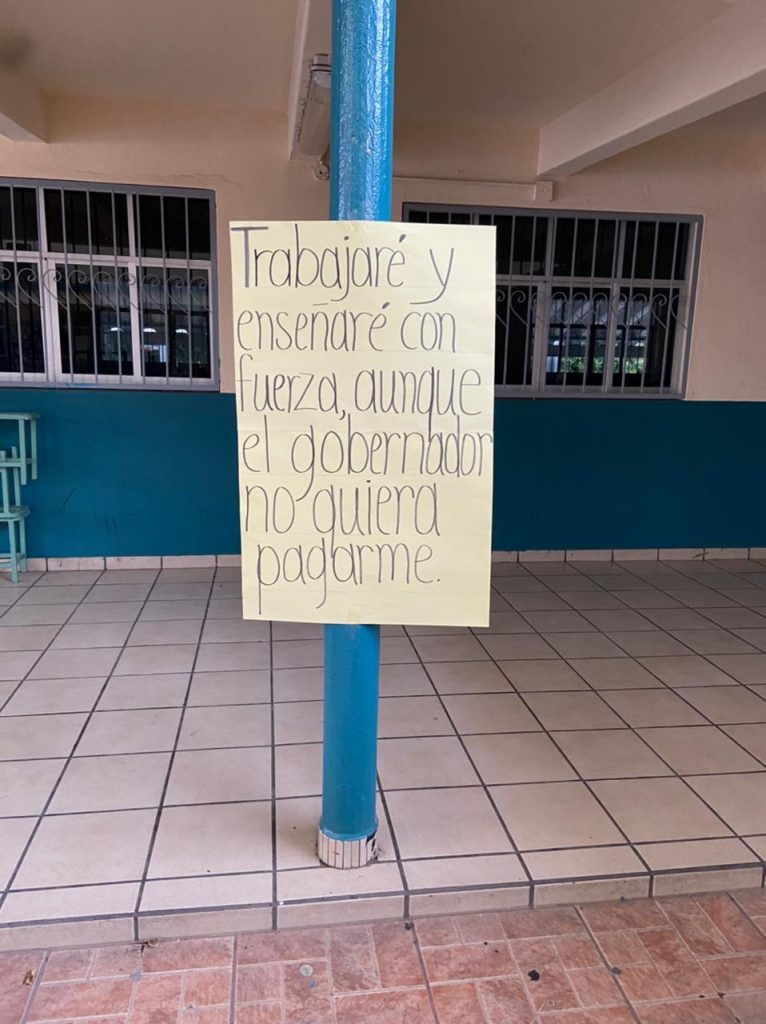 Trabajaré y
enseñaré con
fuerza, aunque
el gobernador
no quiera
pagarme.